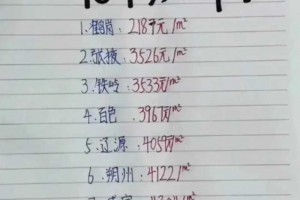 1.鹤岗：2184元/m²
2.张掖：3526元/m²
3.铁岭：3533元/m²
4.百色：3967元/m²
5.辽源：4059元/m²
6.朔州：4122/m²